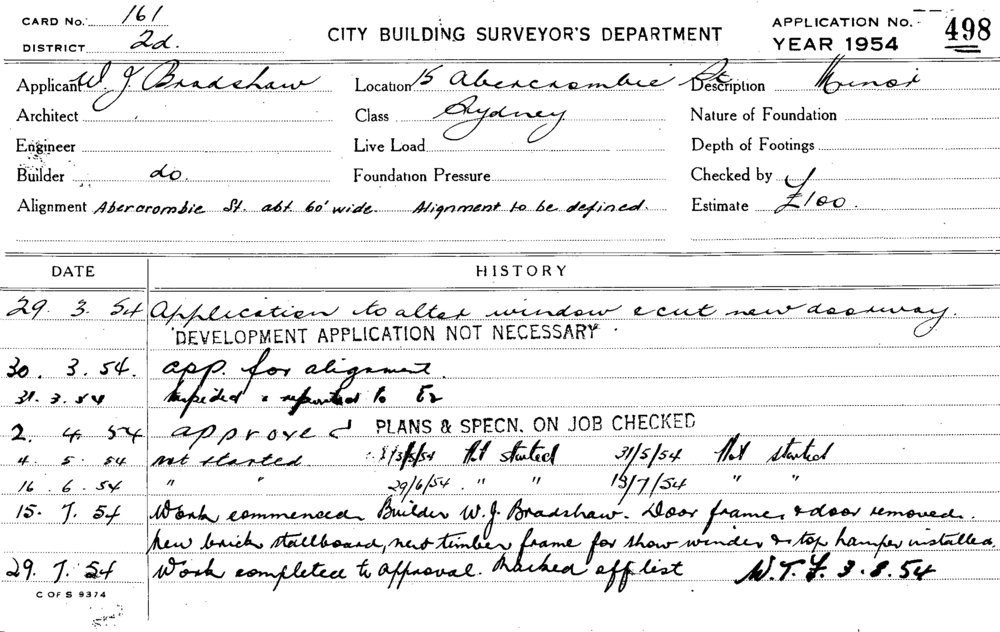 CARD No. 161
DISTRICT 2d.
CITY BUILDING SURVEYOR'S DEPARTMENT
APPLICATION No. 498
YEAR 1954
Applicant W. J. Bradshaw Location 15 Abercrombie St Description Minor
Architect Class Sydney Nature of Foundation
Engineer Live Load Depth of Footings
Builder do. Foundation Pressure Checked by
Alignment Abercrombie St. abt 60' wide. Alignment to be defined. Estimate £100.
DATE HISTORY
29. 3. 54 Application to alter window & cut new doorway.
DEVELOPMENT APPLICATION NOT NECESSARY
30. 3. 54. app. for alignment.
31. 3. 54 & reported to
2. 4. 54 approved PLANS & SPECN. ON JOB CHECKED
4. 5. 54 not started /5/54 Not started 31/5/54 Not started
16. 6. 54 " " 29/6/54. " " 13/7/54 " "
15. 7. 54 Work commenced Builder W. J. Bradshaw. Door frame & door removed.
New brick stallboard, new timber frame for show window & top hamper installed.
29. 7. 54 Work completed to approval. Marked off list W.T.F. 3.8.54
C OF S 9374